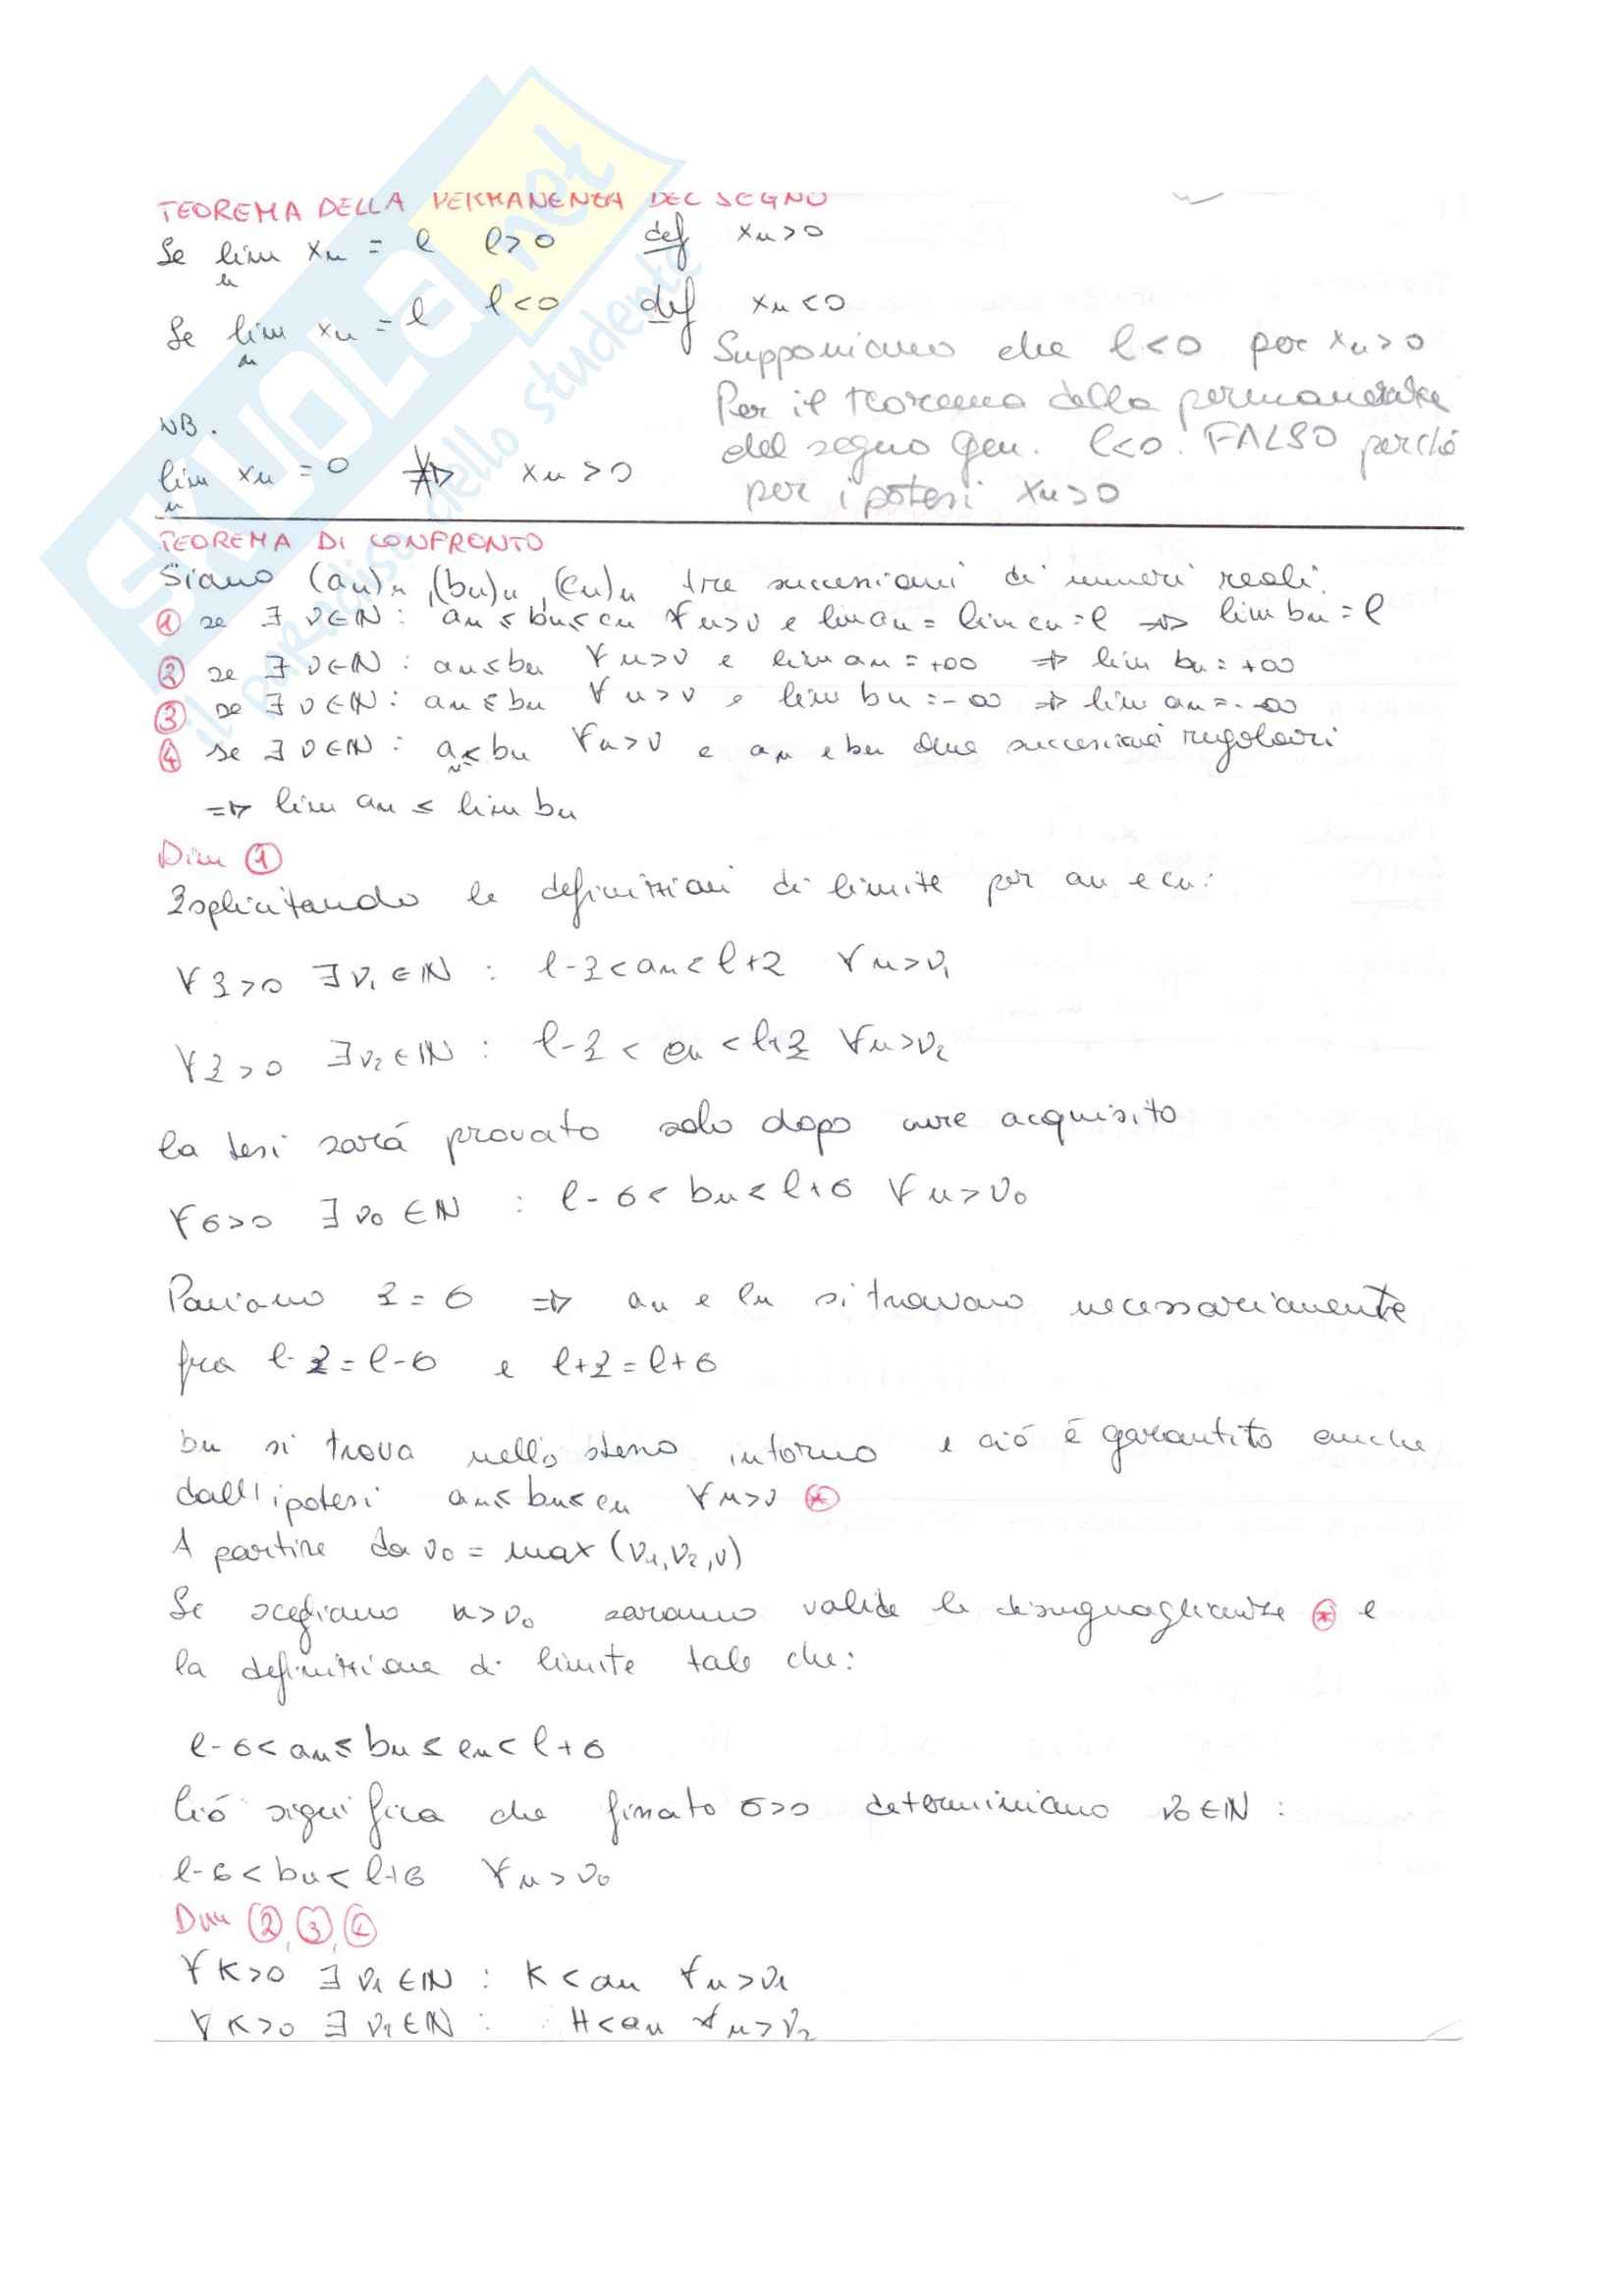 TEOREMA DELLA PERMANENZA DEL SEGNO
Se lim xn = l l>0 def xn>0
n
Se lim xn = l l<0 def xn<0
n
Supponiamo che l<0 per xn>0
Per il teorema della permanenza
del segno gen. l<0. FALSO perché
per ipotesi xn>0
NB.
lim xn = 0 ⇏ xn>0
n
SKUOLA.net
il paradiso dello studente
TEOREMA DI CONFRONTO
Siano (an)n, (bn)n, (cn)n tre successioni di numeri reali.
① se ∃ ν∈ℕ: an≤bn≤cn ∀n>ν e lim an = lim cn = l ⇒ lim bn = l
② se ∃ ν∈ℕ: an≤bn ∀n>ν e lim an = +∞ ⇒ lim bn = +∞
③ se ∃ ν∈ℕ: an≤bn ∀n>ν e lim bn = -∞ ⇒ lim an = -∞
④ se ∃ ν∈ℕ: an≤bn ∀n>ν e an e bn due successioni regolari
⇒ lim an ≤ lim bn
Dim ①
Esplicitando le definizioni di limite per an e cn:
∀ε>0 ∃ν1∈ℕ: l-ε<an<l+ε ∀n>ν1
∀ε>0 ∃ν2∈ℕ: l-ε<cn<l+ε ∀n>ν2
la tesi sarà provato solo dopo avre acquisito
∀σ>0 ∃ν0∈ℕ: l-σ<bn<l+σ ∀n>ν0
Poniamo ε=σ ⇒ an e cn si trovano necessariamente
fra l-ε=l-σ e l+ε=l+σ
bn si trova nello stesso intorno e ciò è garantito anche
dall'ipotesi an≤bn≤cn ∀n>ν ⊛
A partire da ν0 = max(ν1,ν2,ν)
Se scegliamo n>ν0 saranno valide le disuguaglianze ⊛ e
la definizione di limite tale che:
l-σ<an≤bn≤cn<l+σ
Ciò significa che fissato σ>0 determiniamo ν0∈ℕ:
l-σ<bn<l+σ ∀n>ν0
Dim ②,③,④
∀K>0 ∃ν1∈ℕ: K<an ∀n>ν1
∀K>0 ∃ν1∈ℕ: H<an ∀n>ν2